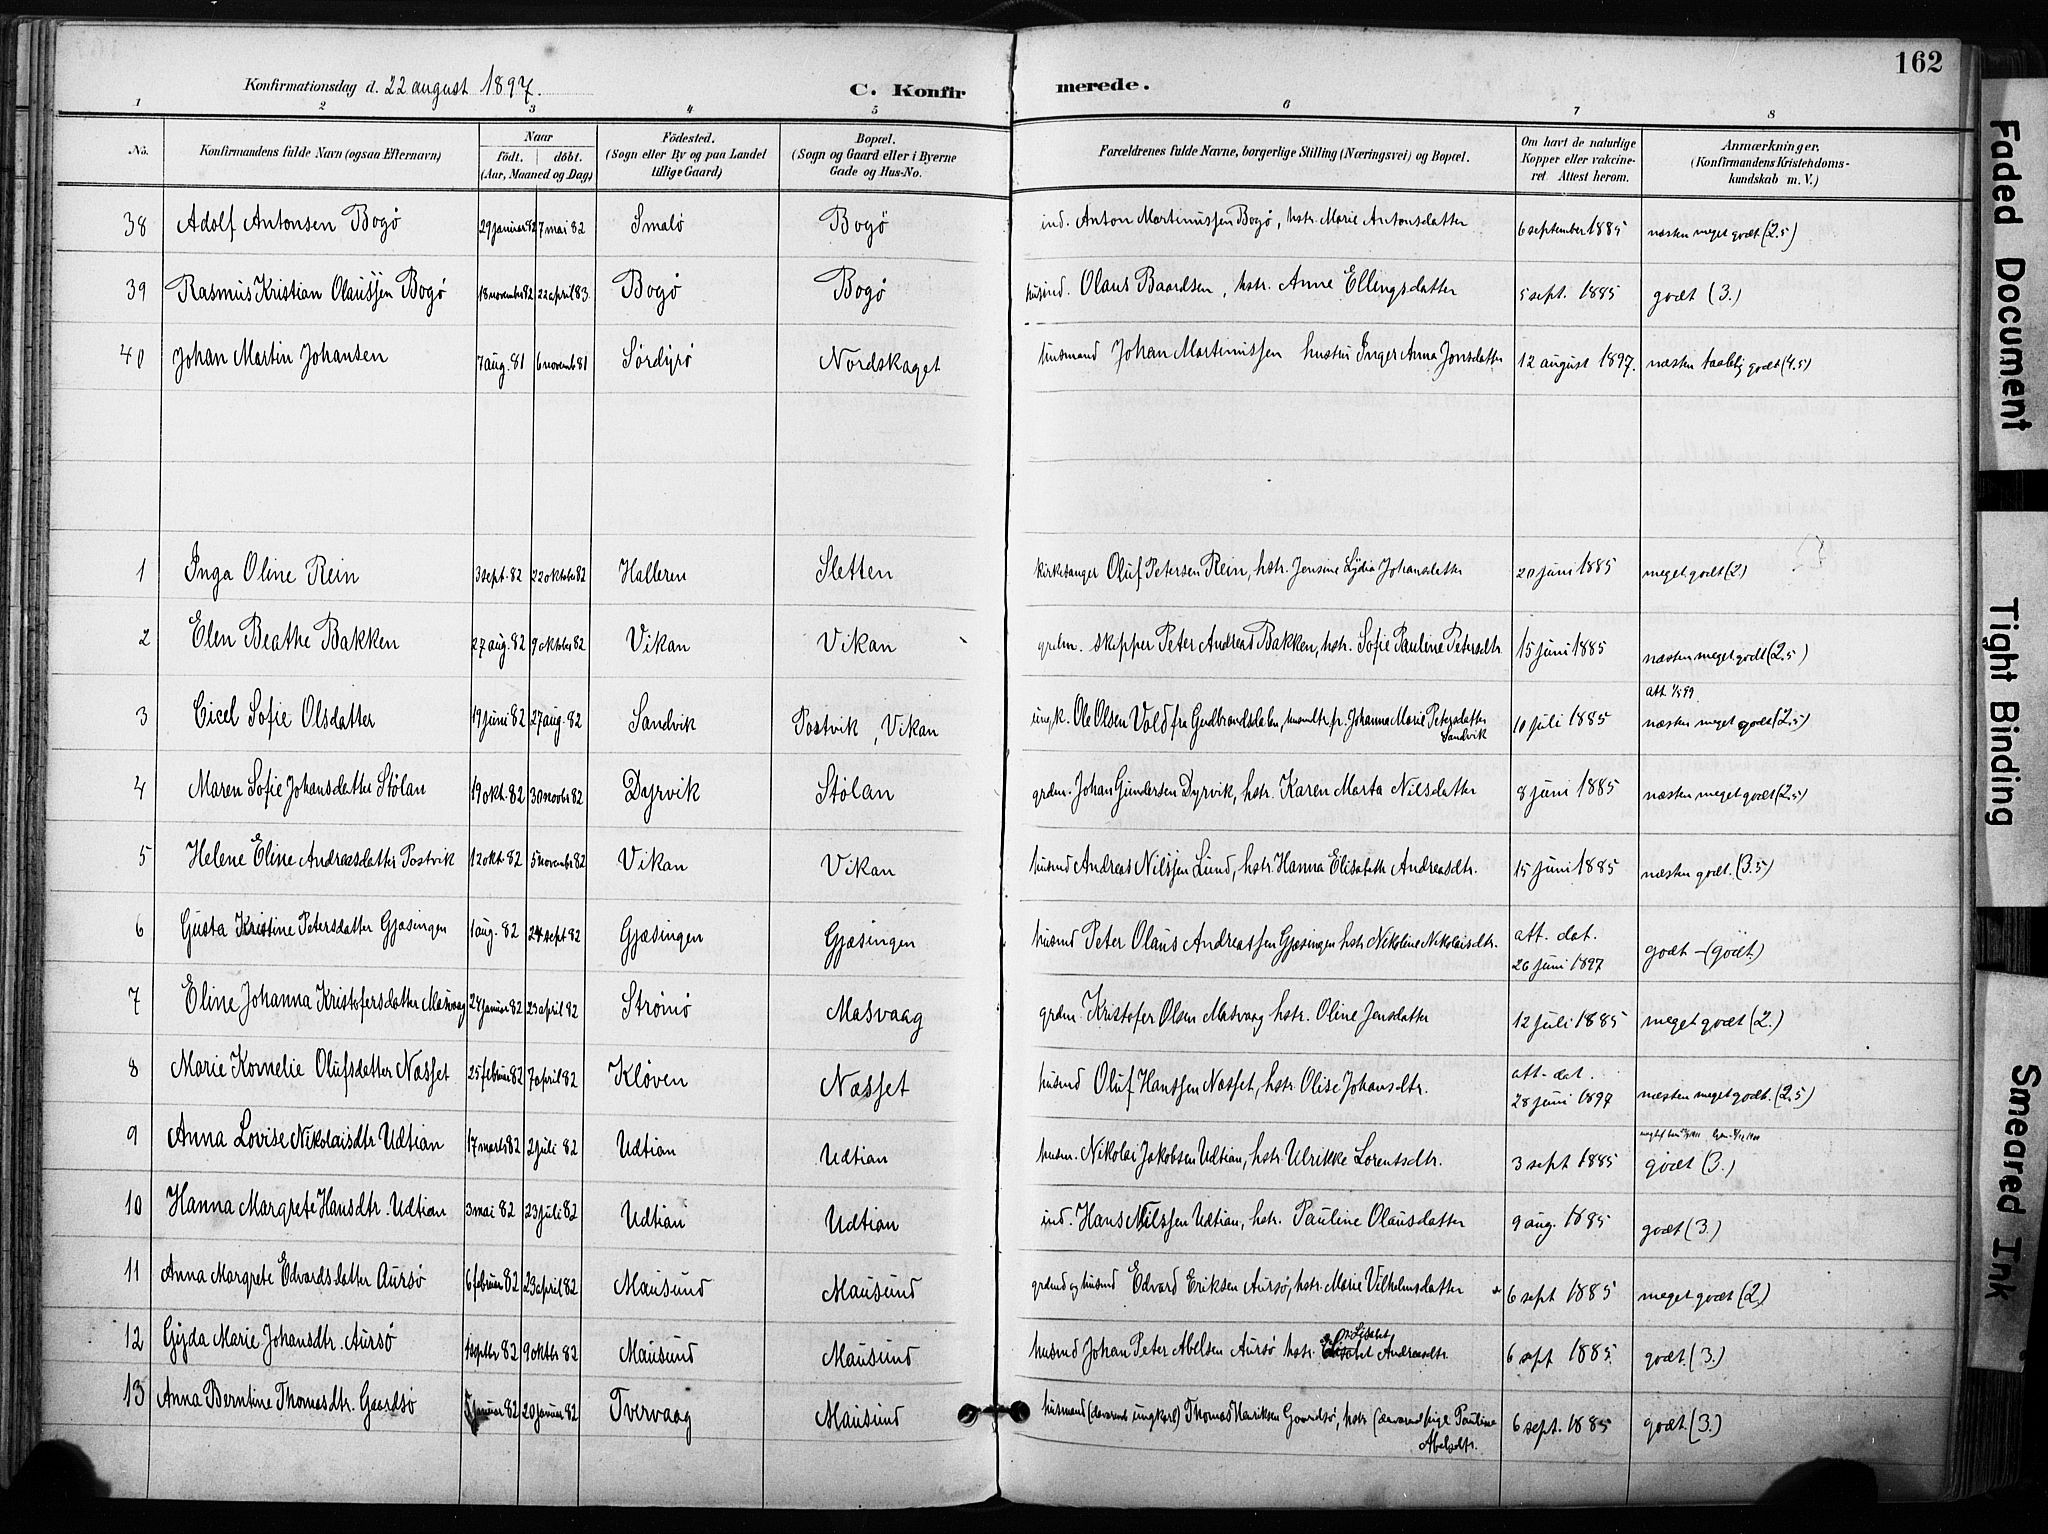 162
Konfirmationsdag d. 22 august 1897.
C. Konfirmerede.
1 2 3 4 5 6 7 8
No. Konfirmandens fulde Navn (ogsaa Efternavn) Naar født. døbt. (Aar, Maaned og Dag) Födested. (Sogn eller By og paa Landet tillige Gaard) Bopæl. (Sogn og Gaard eller i Byerne Gade og Hus-No. Forældrenes fulde Navne, borgerlige Stilling (Næringsvei) og Bopæl. Om havt de naturlige Kopper eller vakcineret. Attest herom. Anmærkninger. (Konfirmandens Kristendomskundskab m. V.)
38 Adolf Antonsen Bogø 29 januar 82 7 mai 82 Smalø Bogø ind. Anton Martinussen Bogø, hstr. Marie Antonsdatter 6 september 1885 næsten meget godt (2.5)
39 Rasmus Kristian Olaussen Bogø 18 november 82 22 april 83. Bogø Bogø husind. Olaus Baardsen, hstr. Anne Ellingsdatter 5 sept. 1885 godt (3.)
40 Johan Martin Johansen 7 aug. 81 6 novemb 81 Sørdyrø Nordskaget husmand Johan Martinussen hustru Inger Anna Jonsdatter 12 august 1897. næsten taalelig godt (4.5)
1 Inga Oline Rein 3 sept. 82 22 oktober 82 Halleren Sletten kirkesanger Oluf Petersen Rein, hstr. Jensine Lydia Johansdatter 20 juni 1885 meget godt (2)
2 Elen Beathe Bakken 27 aug. 82 9 oktober 82 Vikan Vikan grdm. skipper Peter Andreas Bakken, hstr. Sofie Pauline Petersdtr. 15 juni 1885 næsten meget godt (2.5)
3 Cicel Sofie Olsdatter 19 juni 82 27 aug. 82 Sandvik Postvik, Vikan ungk. Ole Olsen Vold fra Gudbrandsdalen, Johanna Marie Petersdatter Sandvik 10 juli 1885 att. 1/5 99 næsten meget godt (2.5)
4 Maren Sofie Johansdatter Stølan 19 okt. 82 30 novbr 82 Dyrvik Stølan grdm. Johan Gundersen Dyrvik, hstr. Karen Marta Nilsdatter 8 juni 1885 næsten meget godt (2.5)
5 Helene Eline Andreasdatter Postvik 12 okt. 82 5 novembr 82 Vikan Vikan husmd Andreas Nilssen Lund, hstr. Hanna Elisabeth Andreasdtr. 15 juni 1885 næsten godt. (3.5)
6 Gusta Kristine Petersdatter Gjæsingen 1 aug. 82 24 sept 82 Gjæsingen Gjæsingen husmd Peter Olaus Andreassen Gjæsingen hstr. Nikoline Nikolaisdtr. att. dat. 26 juni 1897 godt – (godt)
7 Eline Johanna Kristofersdatter Masvaag 24 januar 82 23 april 82 Strømø Masvaag grdm. Kristofer Olsen Masvaag hstr. Oline Jensdatter 12 juli 1885 meget godt (2.)
8 Marie Kornelie Olufsdatter Næsset 25 februar 82 7 april 82 Kløven Næsset husmd Oluf Hanssen Næsset, hstr. Olise Johansdtr. att. dat. 28 juni 1897 næsten meget godt. (2.5)
9 Anna Lovise Nikolaisdtr Udtian 17 marts 82 2 juli 82 Udtian Udtian husm. Nikolai Jakobsen Udtian, hstr. Ulrikke Lorentsdtr. 3 sept 1885 godt (3.)
10 Hanna Margrete Hansdtr. Udtian 3 mai 82 23 juli 82 Udtian Udtian ind. Hans Nilssen Udtian, hstr. Pauline Olausdatter 9 aug. 1885 godt (3.)
11 Anna Margrete Edvardsdatter Aursø 6 februar 82 23 april 82 Mausund Mausund grdmd og husmd Edvard Eriksen Aursø, hstr. Marie Vilhelmsdatter 6 sept 1885 meget godt (2)
12 Gyda Marie Johansdtr. Aursø 1 septbr 82 9 oktbr 82 Mausund Mausund husmd Johan Peter Abelsen Aursø hstr. Elisabet Andreasdtr. 6 sept 1885. godt. (3.)
13 Anna Berntine Thomasdtr. Gaardsø januar 82 20 januar 82 Tvervaag Mausund husmand (daværende ungkarl) Thomas Henriksen Gaardsø, hstr. (daværende pige Pauline Abelsdtr. 6 sept. 1885 godt. (3.)
Faded Document
Tight Binding
Smeared Ink